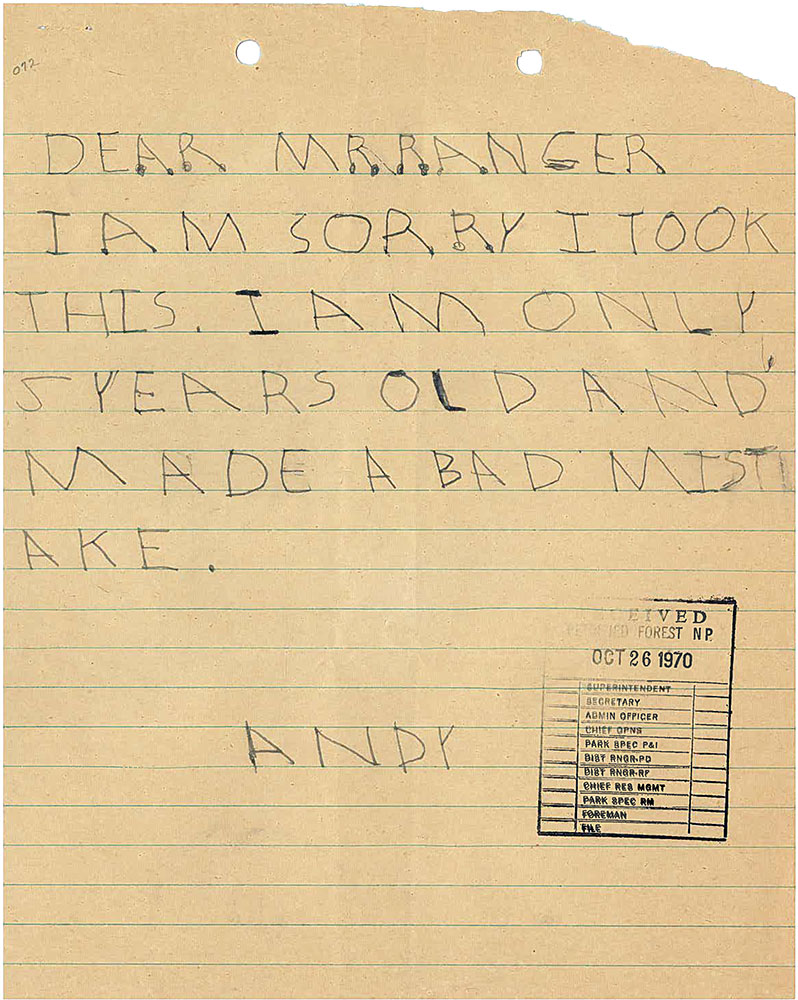 072
DEAR MR. RANGER
I AM SORRY I TOOK
THIS. I AM ONLY
5 YEARS OLD AND
MADE A BAD MIST
AKE.
ANDY
FOREST NP
OCT 26 1970
SUPERINTENDENT
SECRETARY
ADMIN OFFICER
CHIEF OPNS
PARK SPEC P&I
DIST RNGR-PD
DIST RNGR-RF
CHIEF RES MGMT
PARK SPEC RM
FOREMAN
FILE